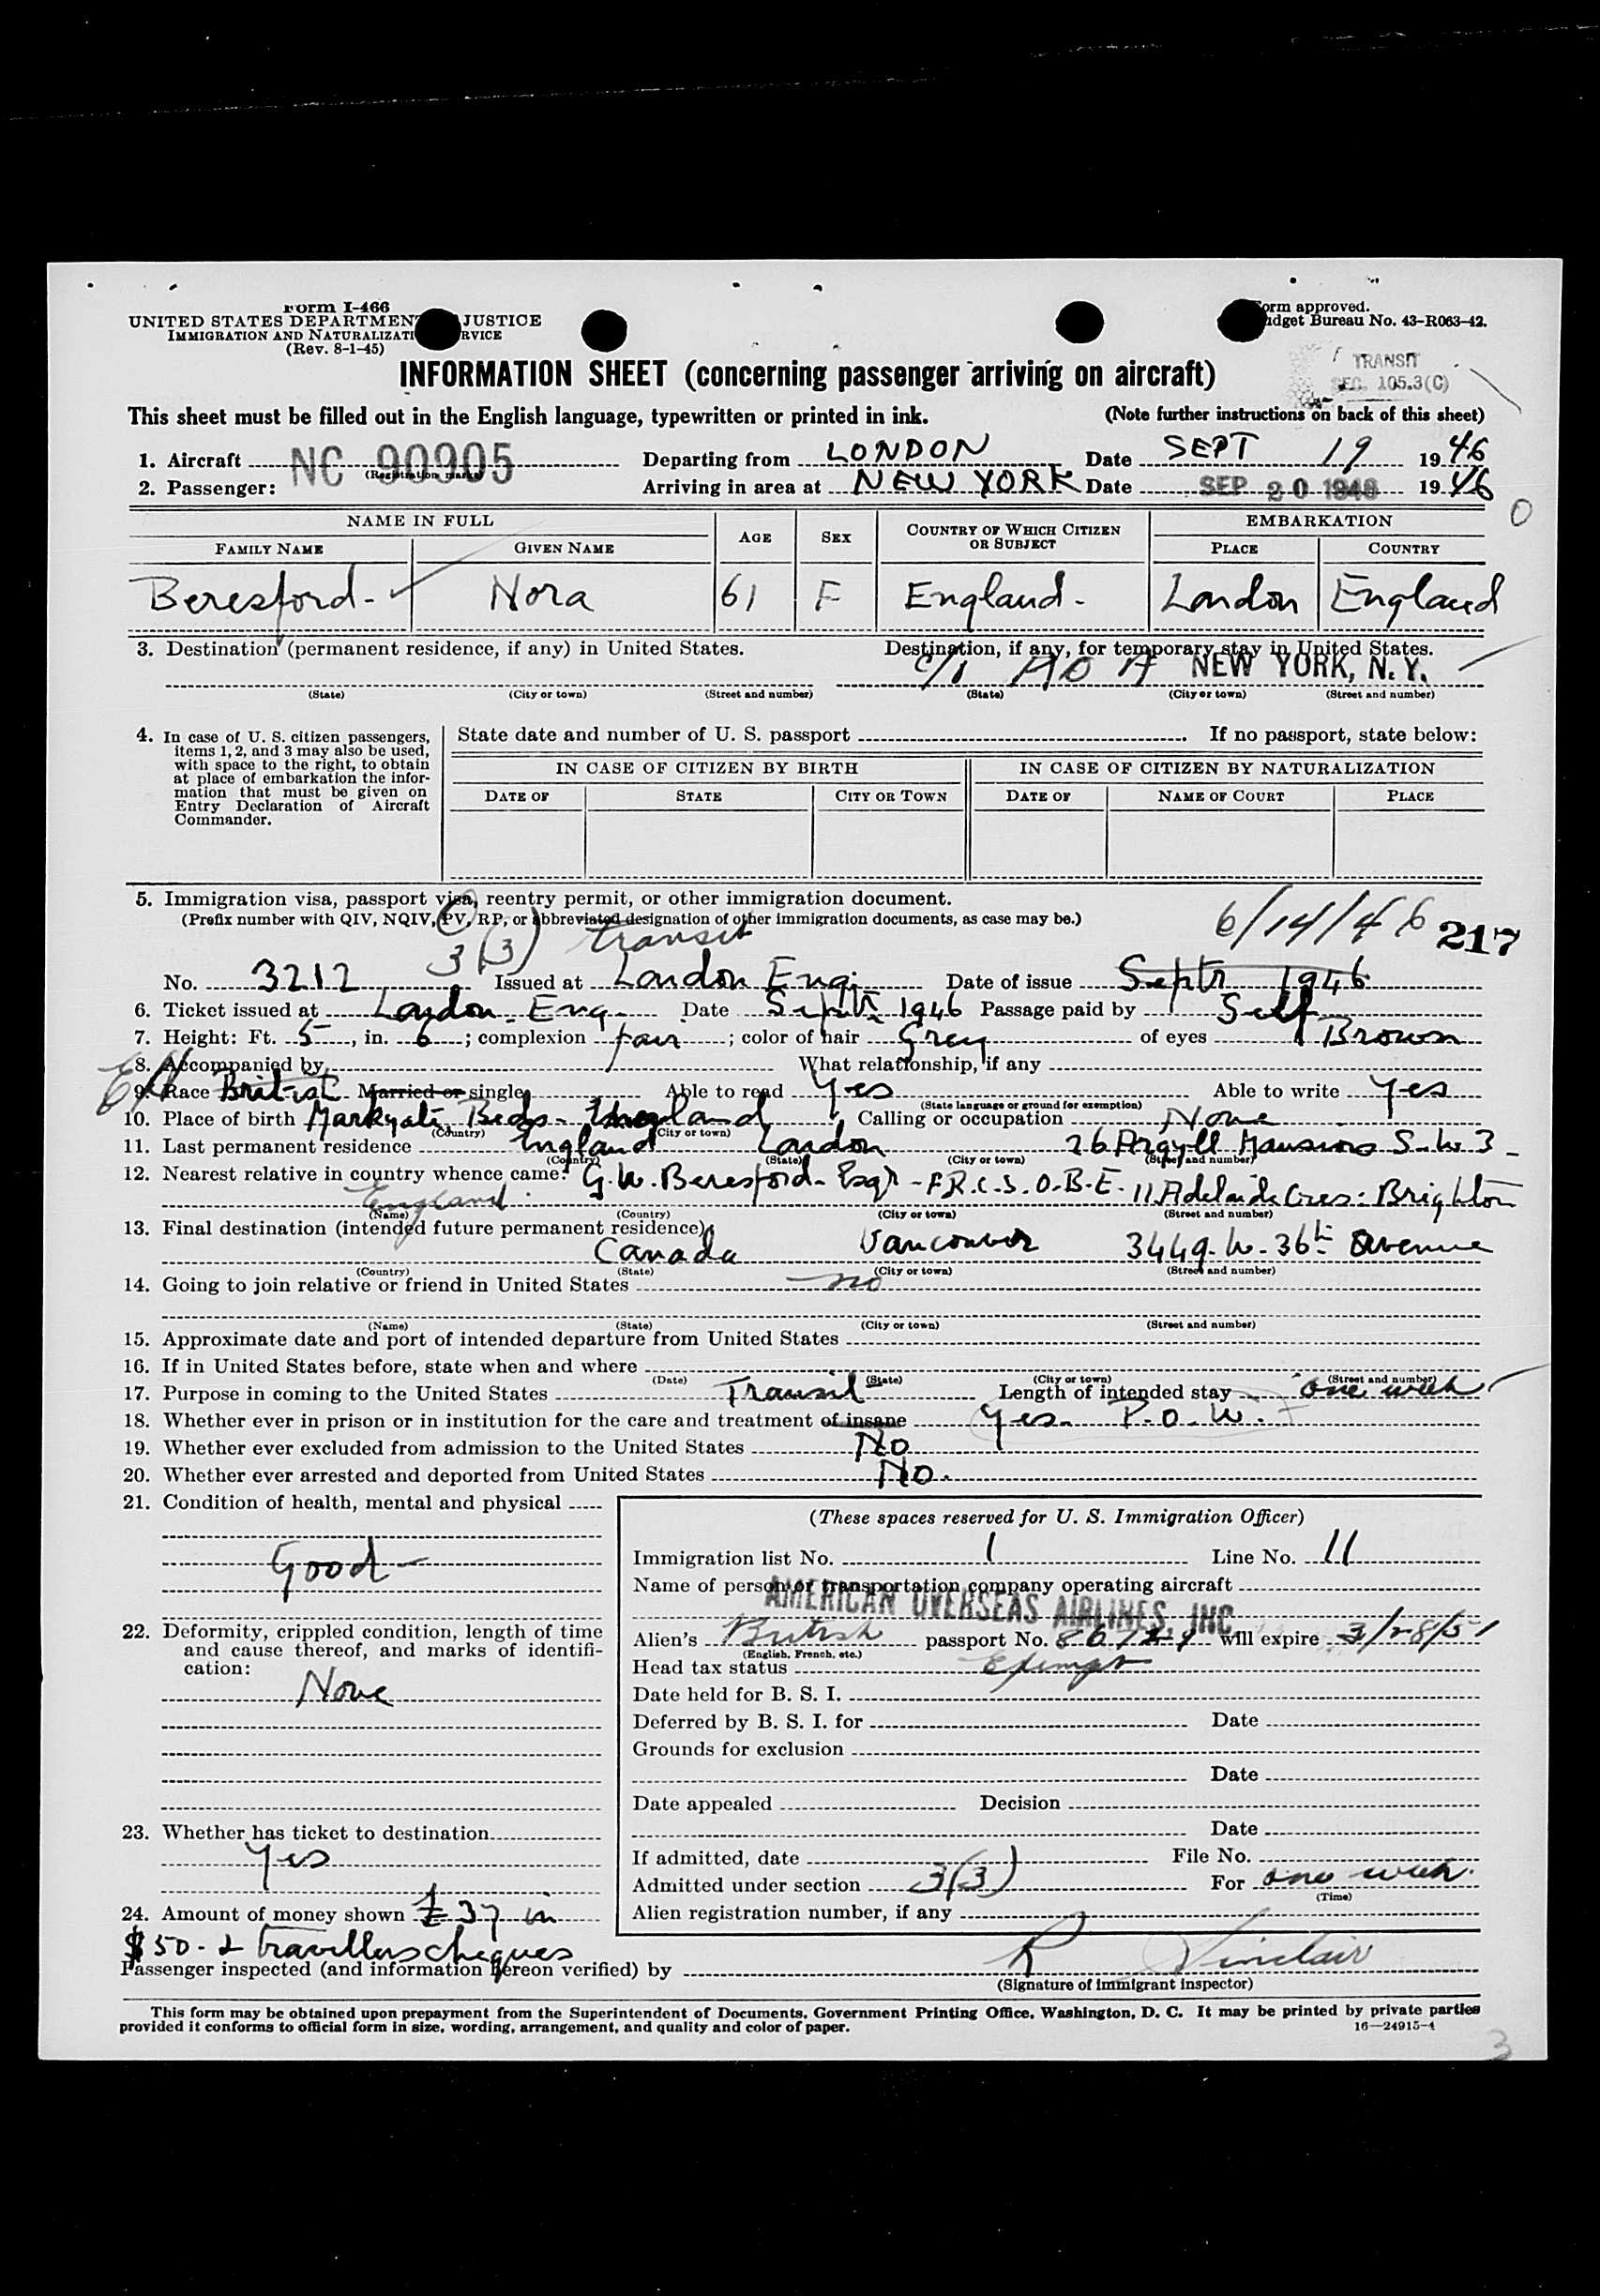 Form I-466
UNITED STATES DEPARTMENT JUSTICE
IMMIGRATION AND NATURALIZATI RVICE
(Rev. 8-1-45)
Form approved.
dget Bureau No. 43-R063-42.
TRANSIT
SEC. 105.3(C)
INFORMATION SHEET (concerning passenger arriving on aircraft)
This sheet must be filled out in the English language, typewritten or printed in ink. (Note further instructions on back of this sheet)
1. Aircraft NC 90905 (Registration marks) Departing from LONDON Date SEPT 19 1946
2. Passenger: Arriving in area at NEW YORK Date SEP 20 1946 1946
0
NAME IN FULL AGE SEX COUNTRY OF WHICH CITIZEN OR SUBJECT EMBARKATION
FAMILY NAME GIVEN NAME PLACE COUNTRY
Beresford- Nora 61 F England- London England
3. Destination (permanent residence, if any) in United States. Destination, if any, for temporary stay in United States.
A O A NEW YORK, N.Y.
(State) (City or town) (Street and number) (State) (City or town) (Street and number)
4. In case of U. S. citizen passengers, items 1, 2, and 3 may also be used, with space to the right, to obtain at place of embarkation the information that must be given on Entry Declaration of Aircraft Commander.
State date and number of U. S. passport If no passport, state below:
IN CASE OF CITIZEN BY BIRTH IN CASE OF CITIZEN BY NATURALIZATION
DATE OF STATE CITY OR TOWN DATE OF NAME OF COURT PLACE
5. Immigration visa, passport visa, reentry permit, or other immigration document.
(Prefix number with QIV, NQIV, PV, RP, or abbreviated designation of other immigration documents, as case may be.)
3(3) transit 6/14/46 217
No. 3212 Issued at London Eng. Date of issue Septr 1946
6. Ticket issued at London. Eng. Date Septr 1946 Passage paid by Self
7. Height: Ft. 5, in. 6; complexion fair; color of hair Grey of eyes Brown
8. Accompanied by What relationship, if any
9. Race British Married or single Able to read Yes Able to write Yes
(State language or ground for exemption)
10. Place of birth Markyate Beds- England, Calling or occupation None
(Country) (City or town)
11. Last permanent residence England London 26 Argyll Mansions S.W.3-
(Country) (State) (City or town) (Street and number)
12. Nearest relative in country whence came: G.W. Beresford- Esqr- F.R.C.S. O.B.E. 11 Adelaide Cres: Brighton
England.
(Name) (Country) (City or town) (Street and number)
13. Final destination (intended future permanent residence)
Canada Vancouver 3449- W- 36th Avenue
(Country) (State) (City or town) (Street and number)
14. Going to join relative or friend in United States no
(Name) (State) (City or town) (Street and number)
15. Approximate date and port of intended departure from United States
16. If in United States before, state when and where
(Date) (State) (City or town) (Street and number)
17. Purpose in coming to the United States Transit Length of intended stay one week
18. Whether ever in prison or in institution for the care and treatment of insane Yes- P.O.W.
19. Whether ever excluded from admission to the United States No
20. Whether ever arrested and deported from United States No.
21. Condition of health, mental and physical
Good-
22. Deformity, crippled condition, length of time and cause thereof, and marks of identification:
None
23. Whether has ticket to destination
Yes
24. Amount of money shown £37 in
$50- & travellers cheques
(These spaces reserved for U. S. Immigration Officer)
Immigration list No. 1 Line No. 11
Name of person or transportation company operating aircraft
AMERICAN OVERSEAS AIRLINES, INC
Alien's British passport No. will expire 3/28/51
(English, French, etc.)
Head tax status Exempt
Date held for B. S. I.
Deferred by B. S. I. for Date
Grounds for exclusion
Date
Date appealed Decision
Date
If admitted, date File No.
Admitted under section 3(3) For one week.
(Time)
Alien registration number, if any
Passenger inspected (and information hereon verified) by R Sinclair
(Signature of immigrant inspector)
This form may be obtained upon prepayment from the Superintendent of Documents, Government Printing Office, Washington, D. C. It may be printed by private parties
provided it conforms to official form in size, wording, arrangement, and quality and color of paper. 16—24915-4
3